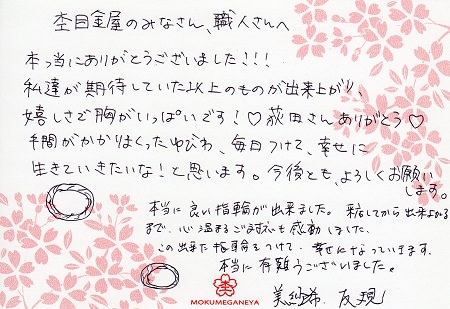 杢目金屋のみなさん、職人さんへ
本っ当にありがとうございました!!!
私達が期待していた以上のものが出来上がり、
嬉しさで胸がいっぱいです!♡ 荻田さんありがとう♡
手間がかかりまくったゆびわ、毎日つけて、幸せに
生きていきたいな!と思います。今後とも、よろしくお願い
します。
本当に良い指輪が出来ました。来店してから出来上がる
まで、心温まるご対応も感動しました。
この出来た指輪をつけて、幸せになっていきます。
本当に有難うございました。
美紗希. 友現
MOKUMEGANEYA